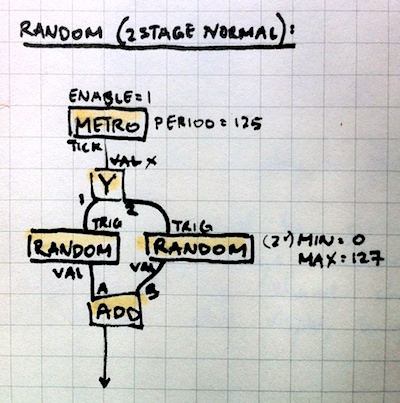 RANDOM (2 STAGE NORMAL):
ENABLE = 1
METRO PERIOD = 125
TICK
VAL X
Y
1 2
TRIG TRIG
RANDOM RANDOM (2x) MIN = 0
VAL VAL MAX = 127
A B
ADD